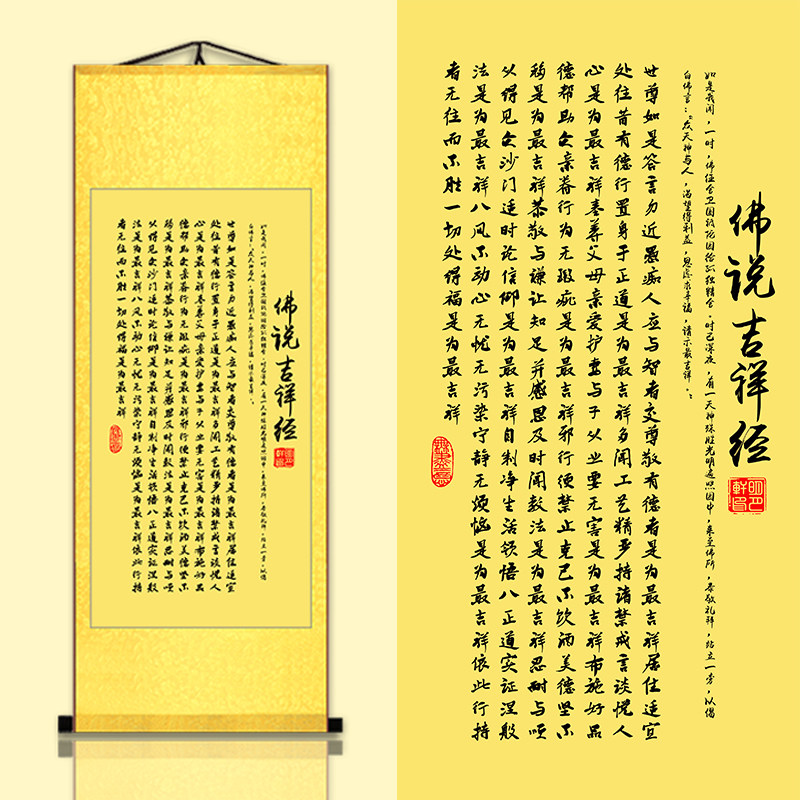 佛说吉祥经
如是我闻，一时，佛住舍卫国祇陀园给孤独精舍，时已深夜，有一天神殊胜光明遍照园中，来至佛所，恭敬礼拜，站立一旁，以偈
白佛言：“众天神与人，渴望得利益，思虑求幸福，请示最吉祥。”
世尊如是答言勿近愚痴人应与智者交尊敬有德者是为最吉祥居住适宜
处往昔有德行置身于正道是为最吉祥多闻工艺精严持诸禁戒言谈悦人
心是为最吉祥奉养父母亲爱护妻与子从业要无害是为最吉祥布施好品
德帮助众亲眷行为无瑕疵是为最吉祥邪行须禁止克己不饮酒美德坚不
移是为最吉祥恭敬与谦让知足并感恩及时闻教法是为最吉祥忍耐与
从得见众沙门适时论信仰是为最吉祥自制净生活领悟八正道实证涅般
法是为最吉祥八风不动心无忧无污染宁静无烦恼是为最吉祥依此行持
者无往而不胜一切处得福是为最吉祥
佛说吉祥经
如是我闻，一时，佛住舍卫国祇陀园给孤独精舍，时已深夜，有一天神殊胜光明遍照园中，来至佛所，恭敬礼拜，站立一旁，以偈
白佛言：“众天神与人，渴望得利益，思虑求幸福，请示最吉祥。”
世尊如是答言勿近愚痴人应与智者交尊敬有德者是为最吉祥居住适宜
处往昔有德行置身于正道是为最吉祥多闻工艺精严持诸禁戒言谈悦人
心是为最吉祥奉养父母亲爱护妻与子从业要无害是为最吉祥布施好品
德帮助众亲眷行为无瑕疵是为最吉祥邪行须禁止克己不饮酒美德坚不
移是为最吉祥恭敬与谦让知足并感恩及时闻教法是为最吉祥忍耐与
从得见众沙门适时论信仰是为最吉祥自制净生活领悟八正道实证涅般
法是为最吉祥八风不动心无忧无污染宁静无烦恼是为最吉祥依此行持
者无往而不胜一切处得福是为最吉祥